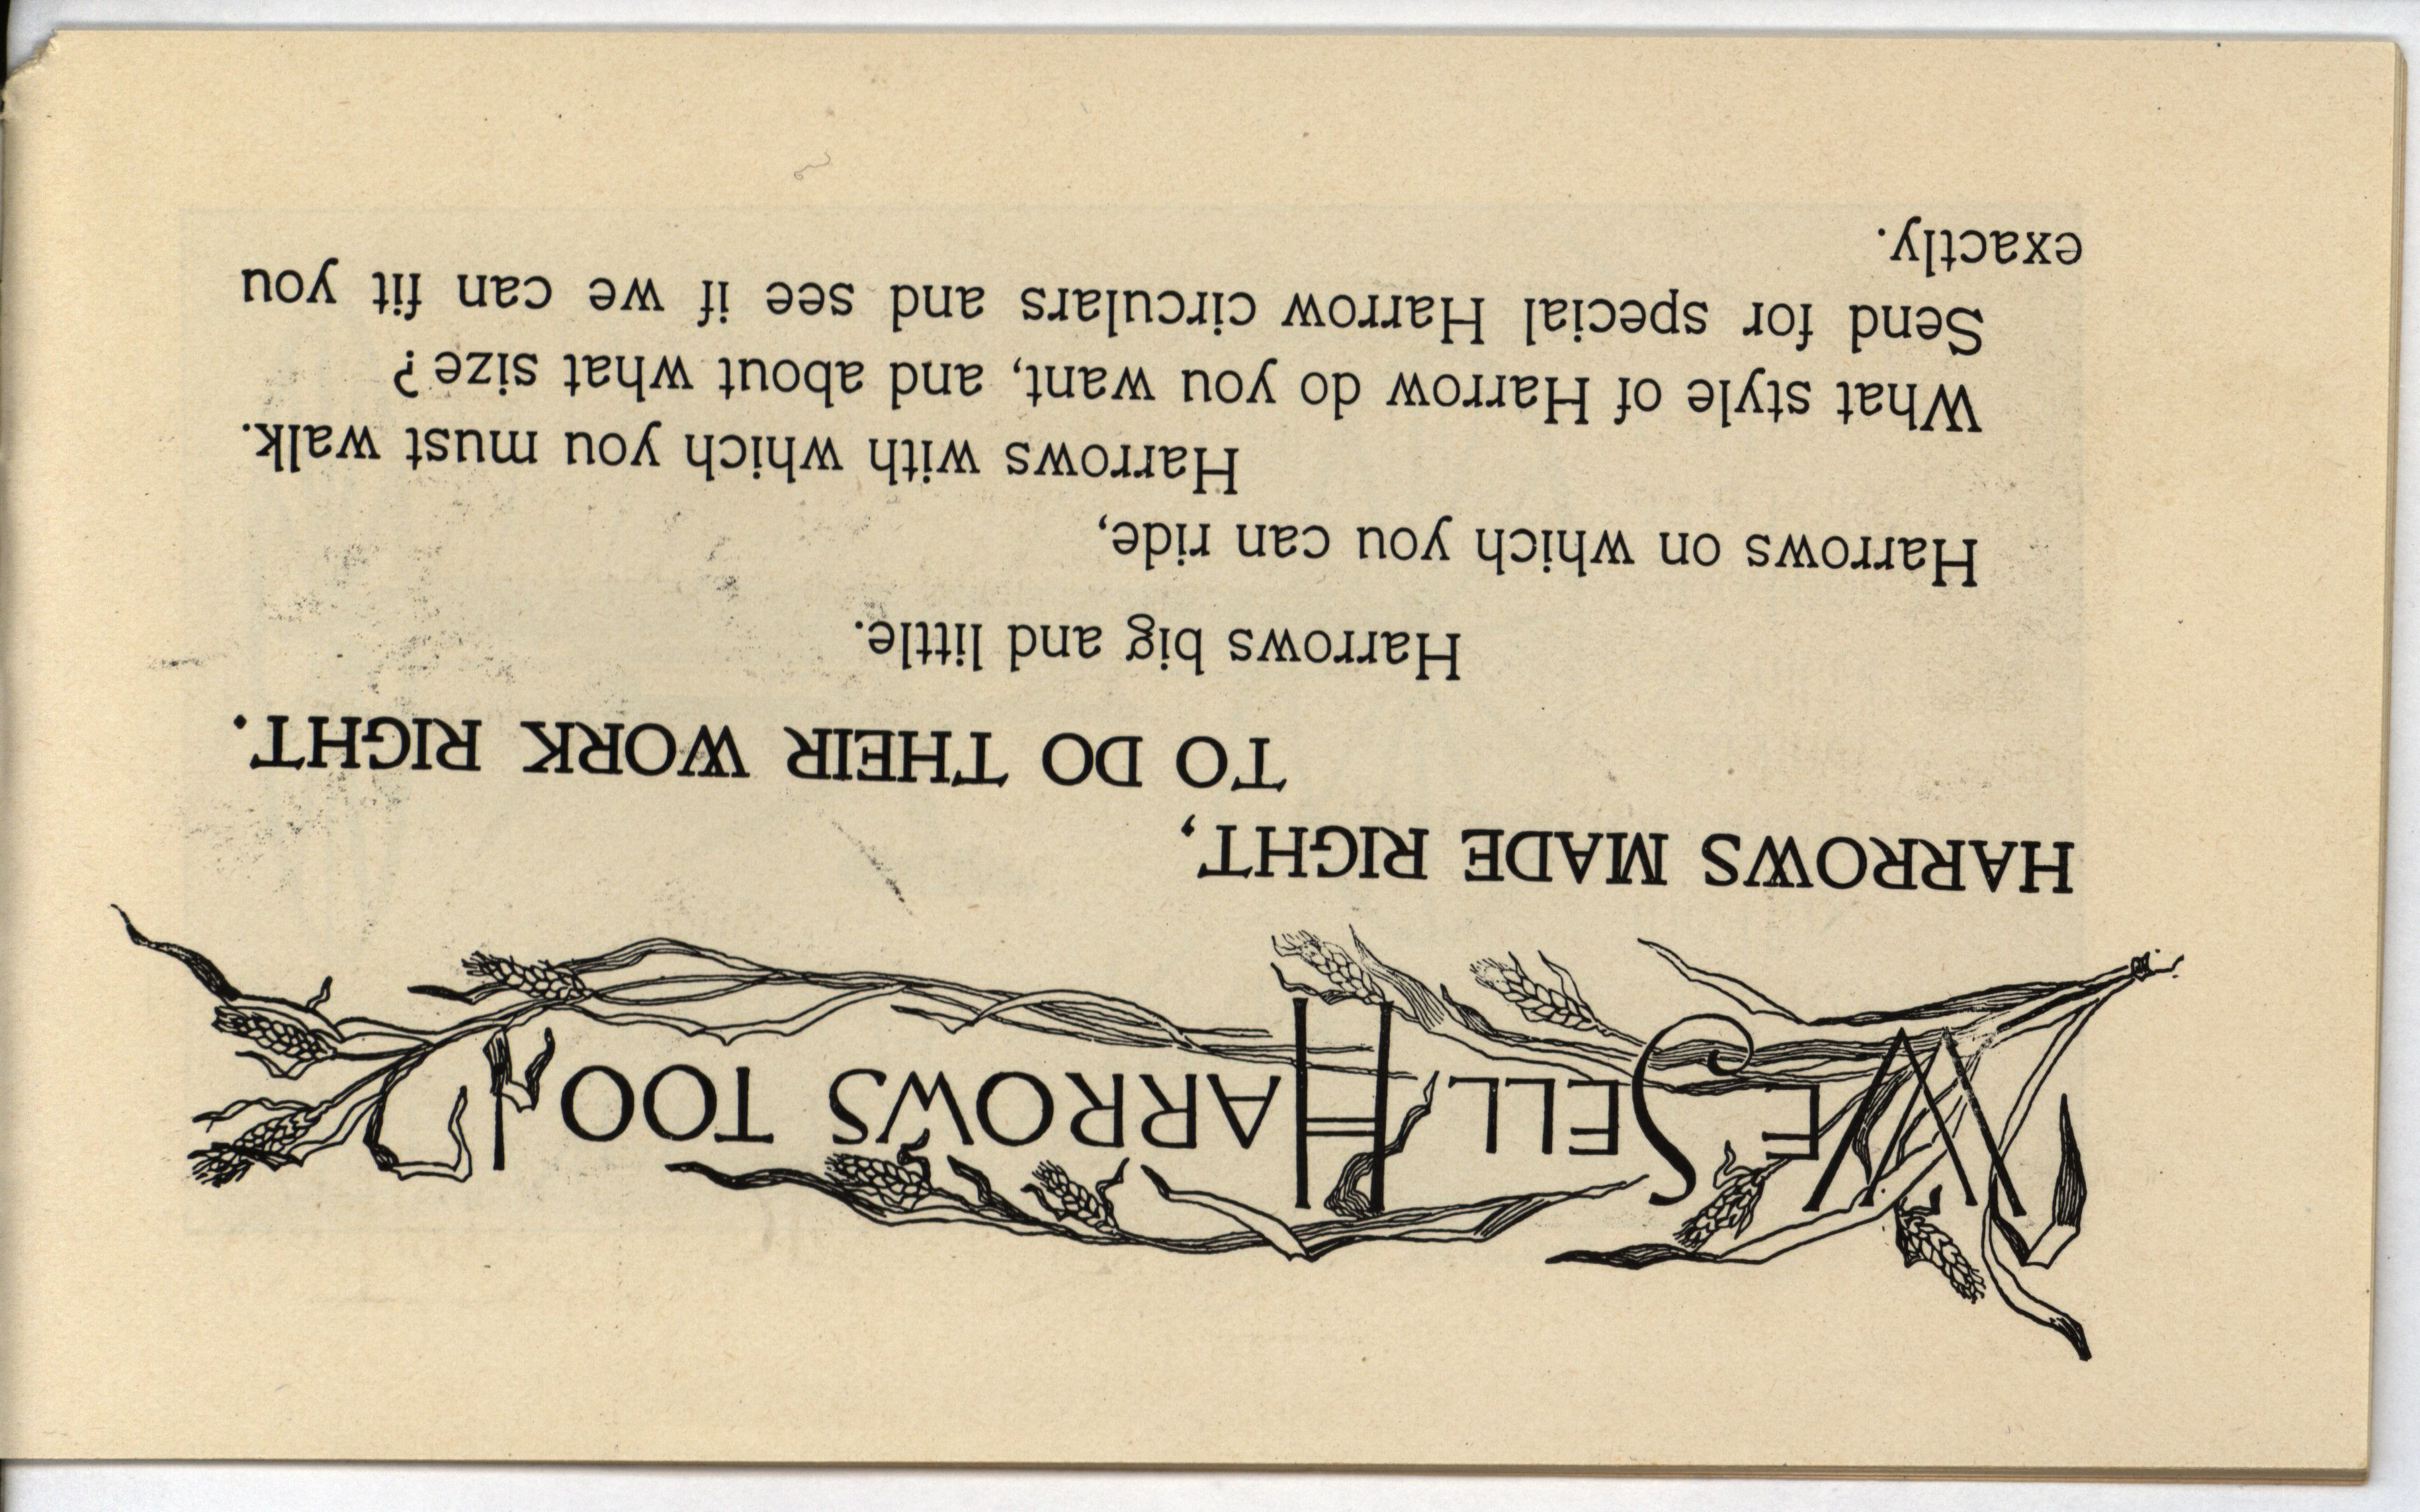 WE SELL HARROWS TOO
HARROWS MADE RIGHT,
TO DO THEIR WORK RIGHT.
Harrows big and little.
Harrows on which you can ride,
Harrows with which you must walk.
What style of Harrow do you want, and about what size?
Send for special Harrow circulars and see if we can fit you
exactly.